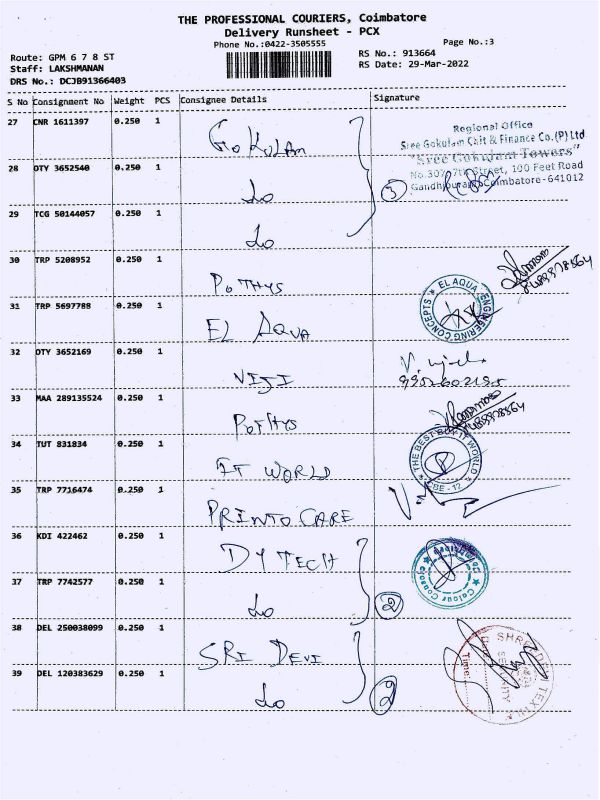 THE PROFESSIONAL COURIERS, Coimbatore
Delivery Runsheet - PCX
Phone No.:0422-3505555
Page No.:3
Route: GPM 6 7 8 ST
RS No.: 913664
Staff: LAKSHMANAN
RS Date: 29-Mar-2022
DRS No.: DCJB91366403
S No Consignment No Weight PCS Consignee Details Signature
27 CNR 1611397 0.250 1 GOKULAM
Regional Office
Sree Gokulam Chit & Finance Co.(P) Ltd
"Sree Gokulam Towers"
No.302, 7th Street, 100 Feet Road
Gandhipuram, Coimbatore-641012
28 OTY 3652540 0.250 1 do 3
29 TCG 50144057 0.250 1 do
30 TRP 5208952 0.250 1 POTHYS
31 TRP 5697788 0.250 1 EL AQUA
EL AQUA ENGINEERING CONCEPTS
32 OTY 3652169 0.250 1 VIJI
33 MAA 289135524 0.250 1 POTHYS
34 TUT 831834 0.250 1 IT WORLD
THE BEST BUY IT WORLD
CBE - 12
35 TRP 7716474 0.250 1 PRINTO CARE
36 KDI 422462 0.250 1 DY TECH
37 TRP 7742577 0.250 1 do 2
38 DEL 250038099 0.250 1 SRI DEVI
SHREE DEVI TEXTILE
SECURITY
Time:
39 DEL 120383629 0.250 1 do 2